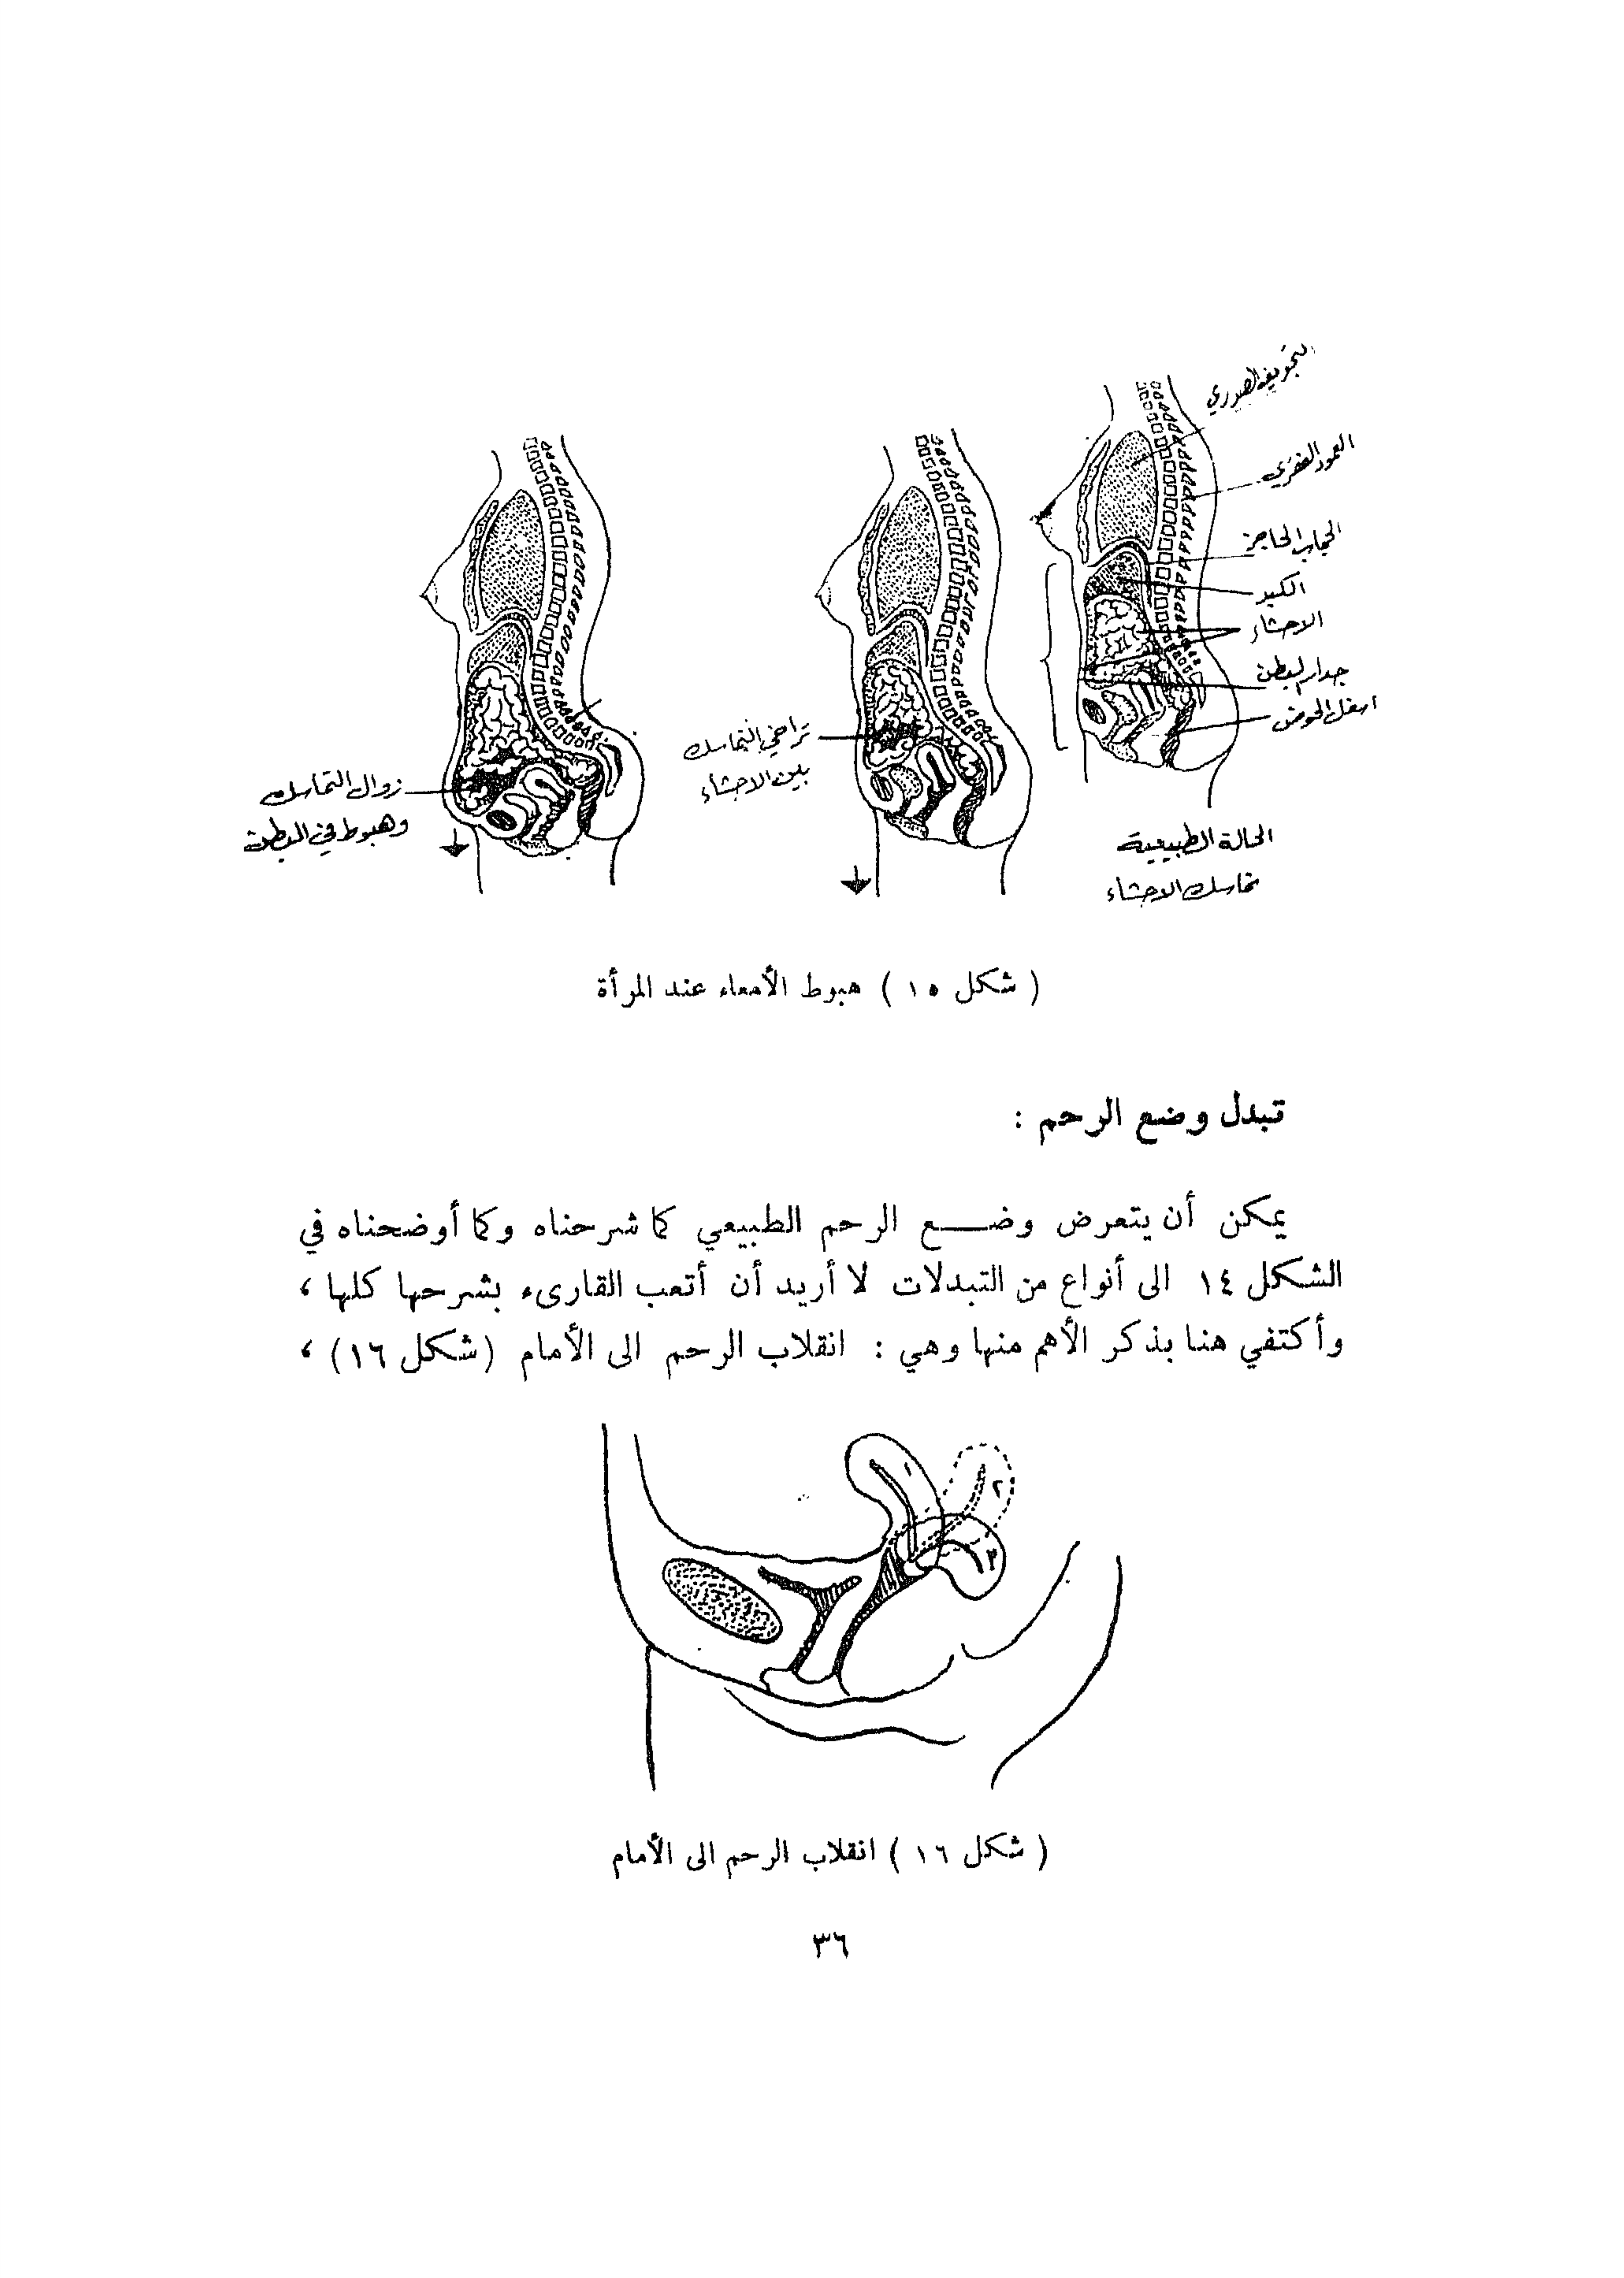 التجويف الصدري
العمود الفقري
الحجاب الحاجز
الكبد
الاحشاء
جدار البطن
اسفل الحوض
الحالة الطبيعية
تماسك الاحشاء
تراخي التماسك
بين الاحشاء
زوال التماسك
وهبوط في البطن
( شكل ١٥ ) هبوط الأمعاء عند المرأة
تبدل وضع الرحم :
يمكن أن يتعرض وضـــع الرحم الطبيعي كما شرحناه وكما أوضحناه في
الشكل ١٤ الى أنواع من التبدلات لا أريد أن أتعب القارىء بشرحها كلها ،
وأكتفي هنا بذكر الأهم منها وهي : انقلاب الرحم الى الأمام (شكل ١٦) ،
١
٢
٣
( شكل ١٦ ) انقلاب الرحم الى الأمام
٣٦